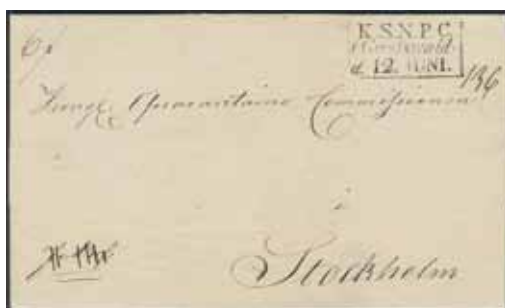 K.S.N.P.C.
Greifswald
d. 12. JUNI.
136
Kongl. Quarantaine Commissionen
i
Stockholm